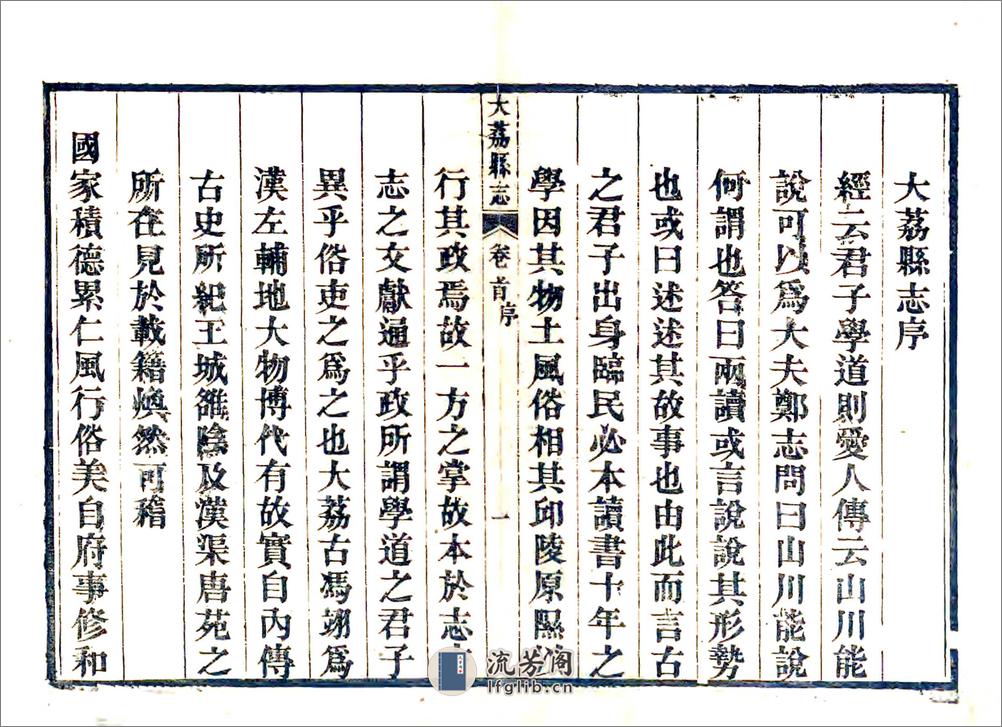 大荔縣志序
經云君子學道則愛人傳云山川能
說可以爲大夫鄭志問曰山川能說
何謂也答曰兩讀或言說說其形勢
也或曰述述其故事也由此而言古
之君子出身臨民必本讀書十年之
學因其物土風俗相其邱陵原隰
大荔縣志 卷首 序 一
行其政焉故一方之掌故本於志
志之文獻通乎政所謂學道之君子
異乎俗吏之爲之也大荔古馮翊爲
漢左輔地大物博代有故實自內傳
古史所紀王城雒陰及漢渠唐苑之
所在見於載籍煥然可稽
國家積德累仁風行俗美自府事修和
流芳阁
lfglib.cn